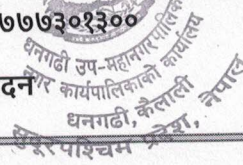 ७७७३०१३००
धनगढी उप-महानगरपालिका
नगर कार्यपालिकाको कार्यालय
दन
धनगढी, कैलाली
सुदूरपश्चिम प्रदेश, नेपाल